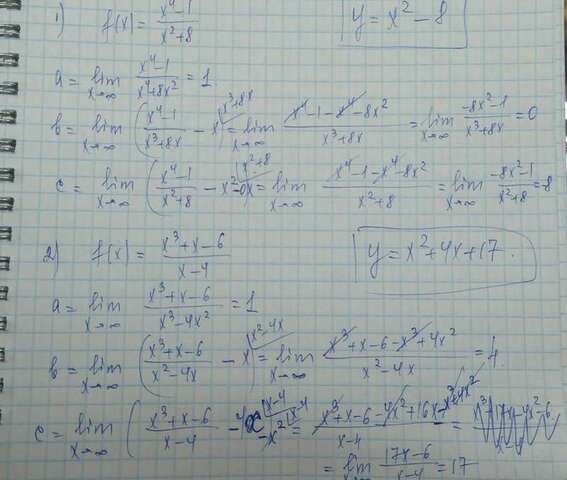 1) f(x) = (x^4-1)/(x^2+8)
y = x^2 - 8
a = lim x→∞ (x^4-1)/(x^4+8x^2) = 1
b = lim x→∞ ((x^4-1)/(x^3+8x) - x) |x^3+8x = lim x→∞ (x^4-1-x^4-8x^2)/(x^3+8x) = lim x→∞ (-8x^2-1)/(x^3+8x) = 0
c = lim x→∞ ((x^4-1)/(x^2+8) - x^2-0x |x^2+8 = lim x→∞ (x^4-1-x^4-8x^2)/(x^2+8) = lim x→∞ (-8x^2-1)/(x^2+8) = -8
2) f(x) = (x^3+x-6)/(x-4)
y = x^2+4x+17.
a = lim x→∞ (x^3+x-6)/(x^3-4x^2) = 1
b = lim x→∞ ((x^3+x-6)/(x^2-4x) - x) |x^2-4x = lim x→∞ (x^3+x-6-x^3+4x^2)/(x^2-4x) = 4
c = lim x→∞ ((x^3+x-6)/(x-4) - x |x-4 - x^2 |x-4 = (x^3+x-6-4x^2+16x-x^3+4x^2)/(x-4) =
= lim x→∞ (17x-6)/(x-4) = 17